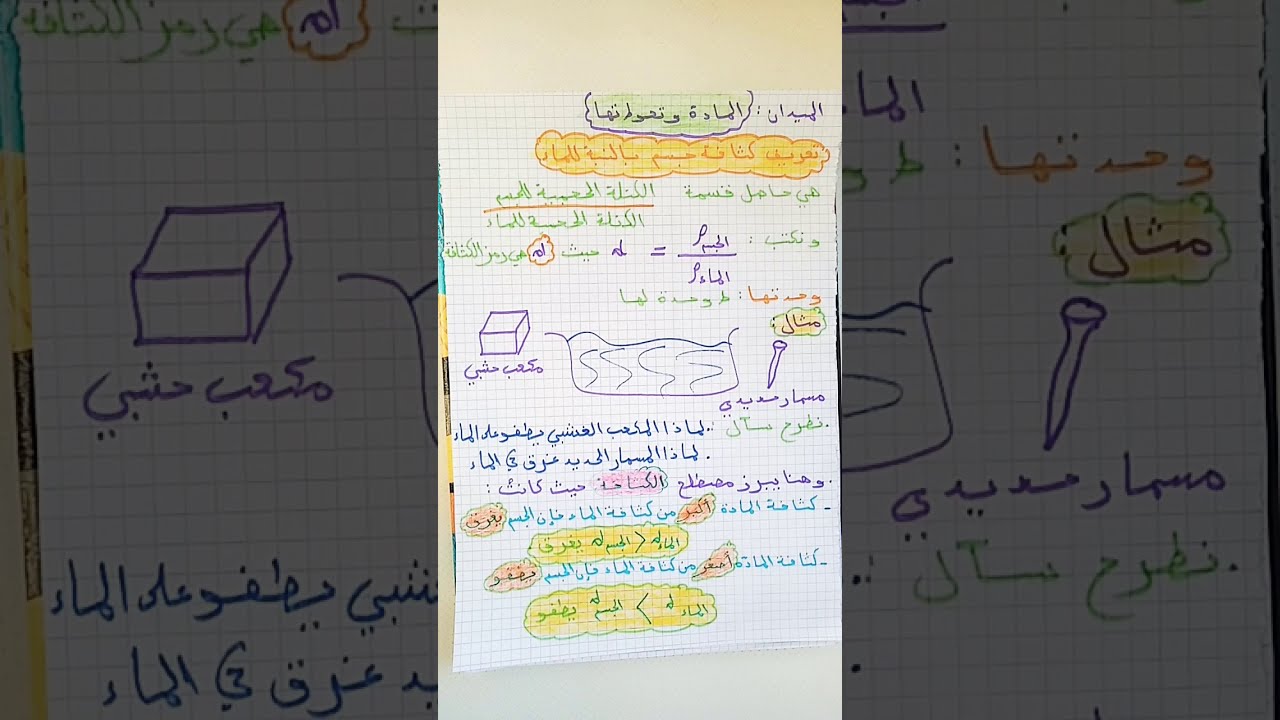 الميدان : المادة وتحولاتها
تعريف كثافة جسم بالنسبة للماء
هي حاصل قسمة الكتلة الحجمية للجسم
الكتلة الحجمية للماء
ونكتب : d = ρ الجسم / ρ الماء حيث d هي رمز الكثافة
وحدتها : لا وحدة لها
مثال :
مكعب خشبي
مسمار حديدي
. نطرح سآل : . لماذا المكعب الخشبي يطفو على الماء
. لماذا المسمار الحديد غرق في الماء
. وهنا يبرز مصطلح الكثافة حيث كانت :
- كثافة المادة أكبر من كثافة الماء فإن الجسم يغرق
d الماء < d الجسم يغرق
- كثافة المادة أصغر من كثافة الماء فإن الجسم يطفو
d الماء > d الجسم يطفو